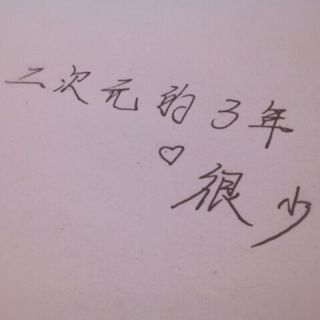 二次元的3年
♡
很少